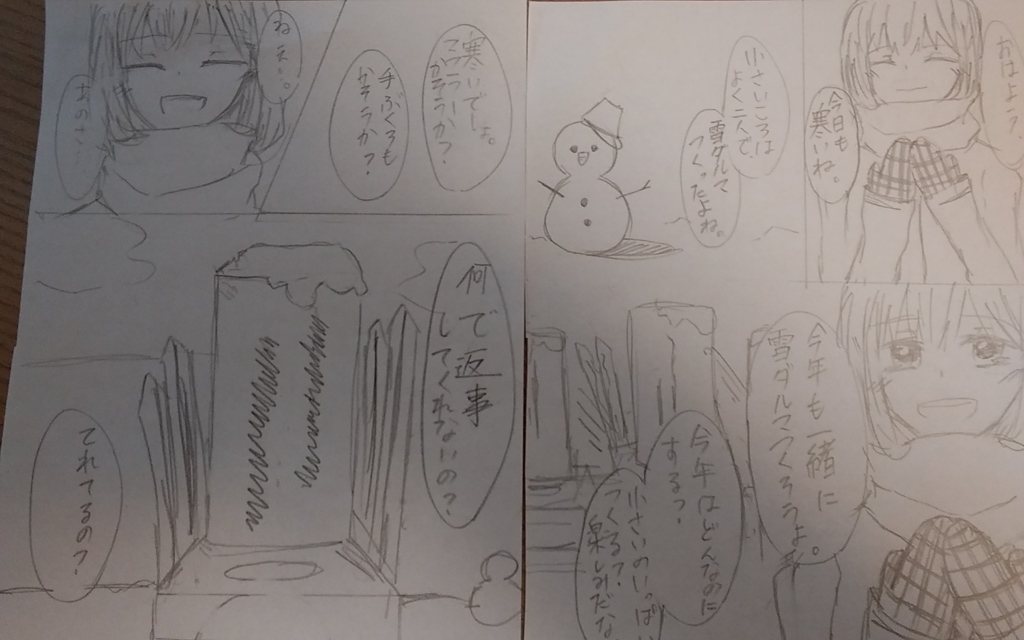 おはよう。
今日も
寒いね。
小さいころは
よく二人で
雪ダルマ
つくったよね。
今年も一緒に
雪ダルマつくろうよ。
今年はどんなのに
するっ?
小さいのいっぱい
つくる?
楽しみだな
寒いでしょ。
マフラーいる?
かそうか?
手ぶくろも
かそうか?
ねぇ。
あのさ…
何で返事
してくれないの?
てれてるの?